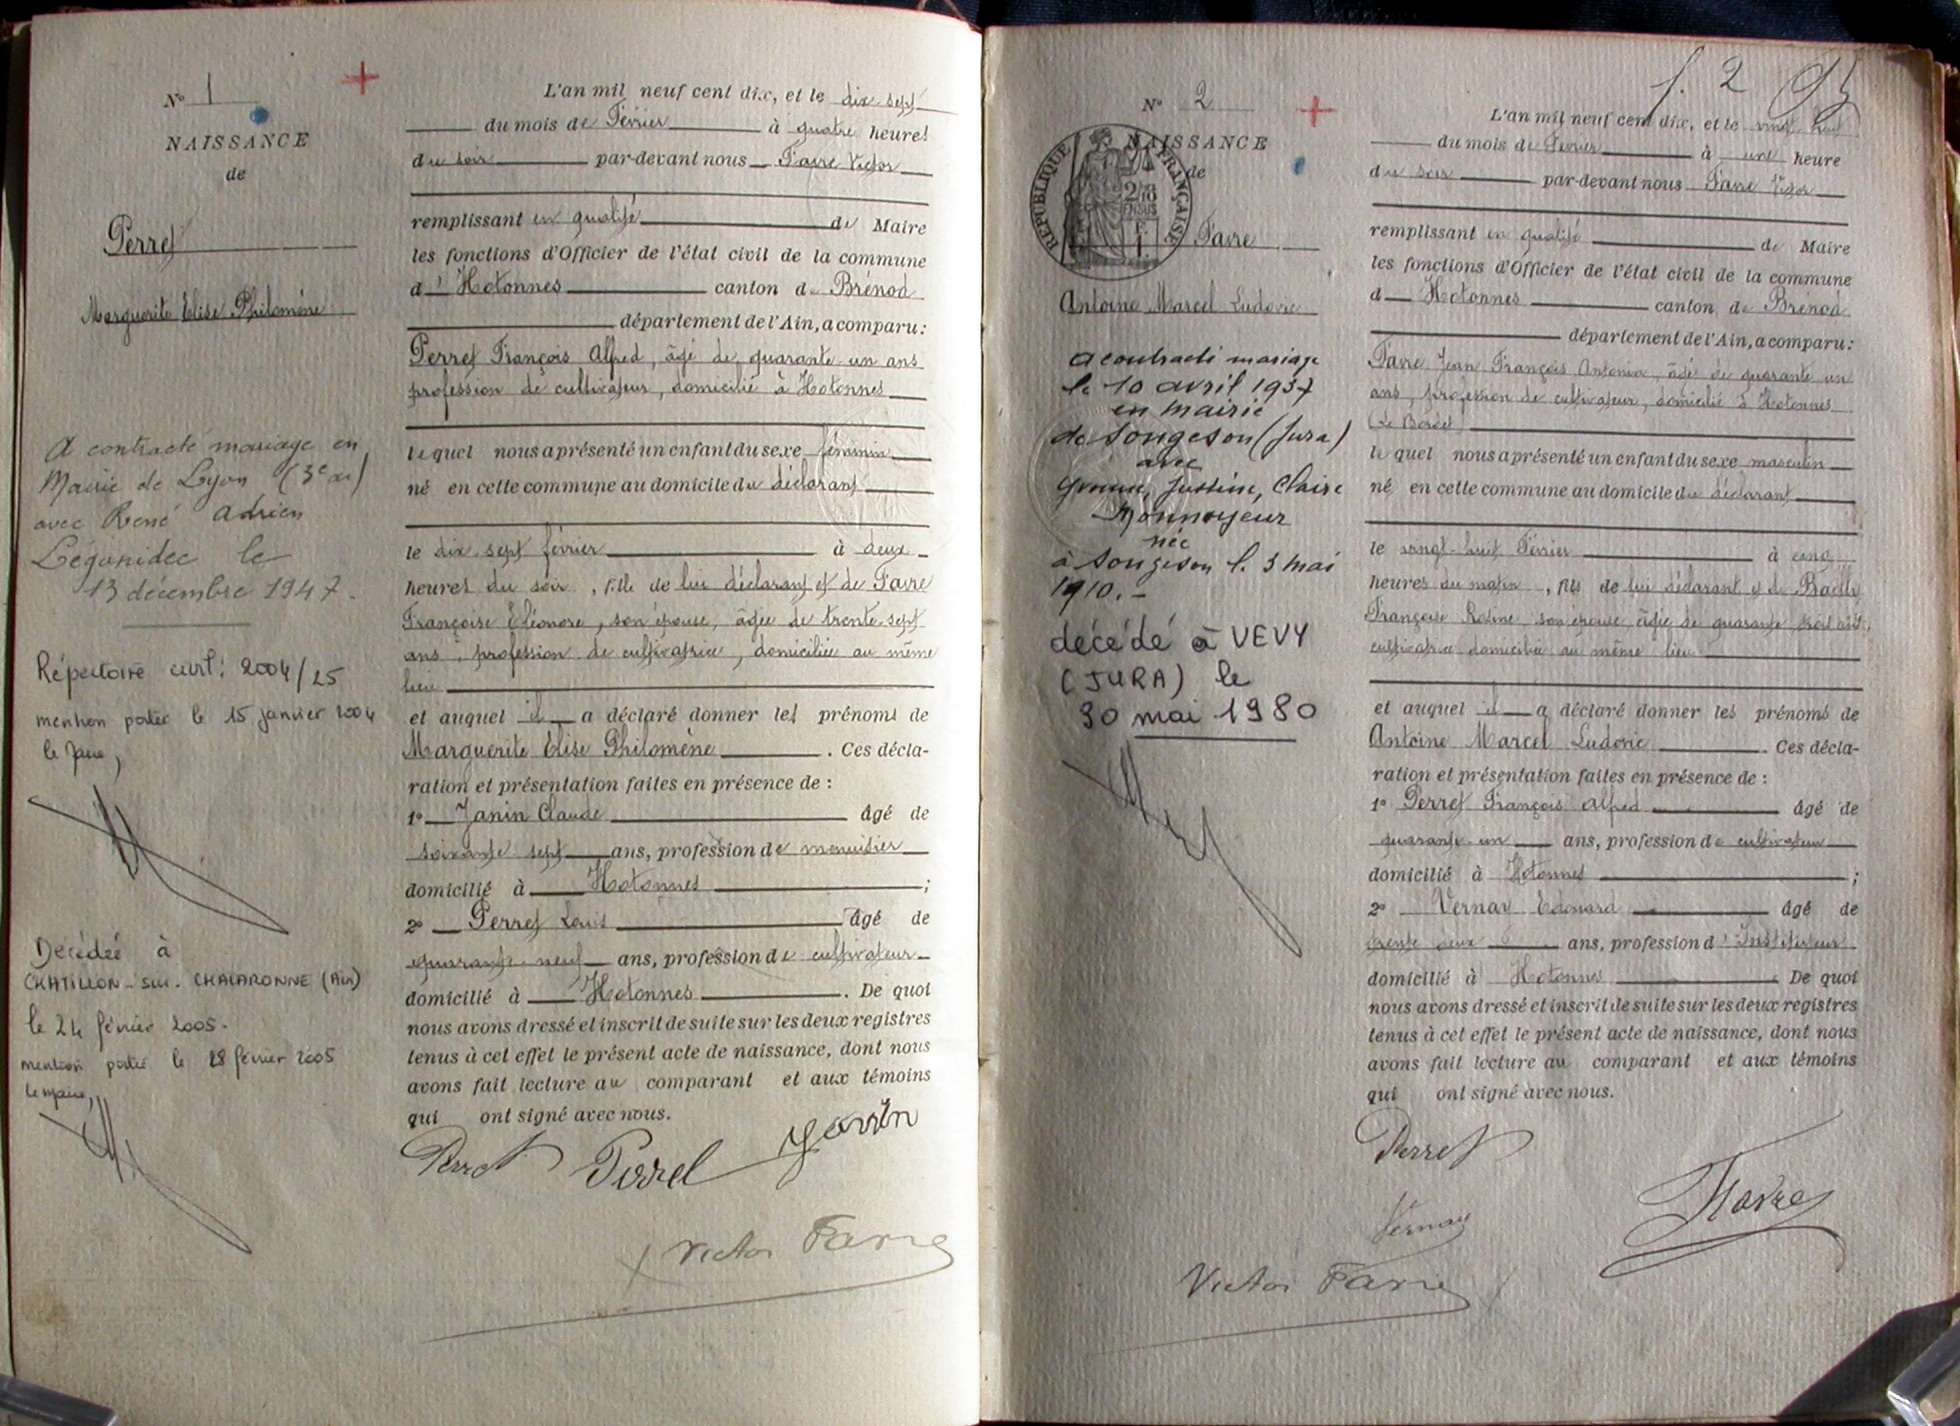 N° 1
NAISSANCE
de
Perret
Marguerite Elise Philomène
A contracté mariage en
Mairie de Lyon (3e ar)
avec René Adrien
Légonidec le
13 décembre 1947.
Répertoire civil : 2004/25
mention portée le 15 janvier 2004
le maire,
Décédée à
CHATILLON-sur-CHALARONNE (Ain)
le 24 février 2005.
mention portée le 28 février 2005
Le maire,
L'an mil neuf cent dix, et le dix-sept
du mois de Février à quatre heures
du soir par-devant nous Favre Victor
remplissant en qualité de Maire
les fonctions d'Officier de l'état civil de la commune
d' Hotonnes canton de Brénod
département de l'Ain, a comparu :
Perret François Alfred, âgé de quarante-un ans
profession de cultivateur, domicilié à Hotonnes
lequel nous a présenté un enfant du sexe féminin
né en cette commune au domicile du déclarant
le dix-sept février à deux
heures du soir, fille de lui déclarant et de Favre
Françoise Eléonore, son épouse, âgée de trente-sept
ans, profession de cultivatrice, domiciliée au même
lieu
et auquel il a déclaré donner les prénoms de
Marguerite Elise Philomène. Ces décla-
ration et présentation faites en présence de :
1° Janin Claude âgé de
soixante-sept ans, profession de menuisier
domicilié à Hotonnes ;
2° Perret Louis âgé de
quarante-neuf ans, profession de cultivateur
domicilié à Hotonnes. De quoi
nous avons dressé et inscrit de suite sur les deux registres
tenus à cet effet le présent acte de naissance, dont nous
avons fait lecture au comparant et aux témoins
qui ont signé avec nous.
Perret Perret Janin
Victor Favre
f. 2
N° 2
NAISSANCE
de
RÉPUBLIQUE FRANÇAISE
Favre
Antoine Marcel Ludovic
a contracté mariage
le 10 avril 1937
en mairie
de Songeson (Jura)
avec
Justine, Claire
Monnoyeur
née
à Songeson le 3 mai
1910.-
décédé à VEVY
(JURA) le
30 mai 1980
L'an mil neuf cent dix, et le vingt-huit
du mois de Février à une heure
du soir par-devant nous Favre Victor
remplissant en qualité de Maire
les fonctions d'Officier de l'état civil de la commune
d Hotonnes canton de Brénod
département de l'Ain, a comparu :
Favre Jean François Antonin, âgé de quarante-un
ans, profession de cultivateur, domicilié à Hotonnes
lequel nous a présenté un enfant du sexe masculin
né en cette commune au domicile du déclarant
le vingt-huit Février à cinq
heures du matin, fils de lui déclarant et de
Françoise son épouse, âgée de quarante-trois ans,
cultivatrice domiciliée au même lieu
et auquel il a déclaré donner les prénoms de
Antoine Marcel Ludovic. Ces décla-
ration et présentation faites en présence de :
1° Perret François Alfred âgé de
quarante-un ans, profession de cultivateur
domicilié à Hotonnes ;
2° Vernay Edouard âgé de
trente-deux ans, profession d'Instituteur
domicilié à Hotonnes. De quoi
nous avons dressé et inscrit de suite sur les deux registres
tenus à cet effet le présent acte de naissance, dont nous
avons fait lecture au comparant et aux témoins
qui ont signé avec nous.
Perret
Vernay
Favre
Victor Favre